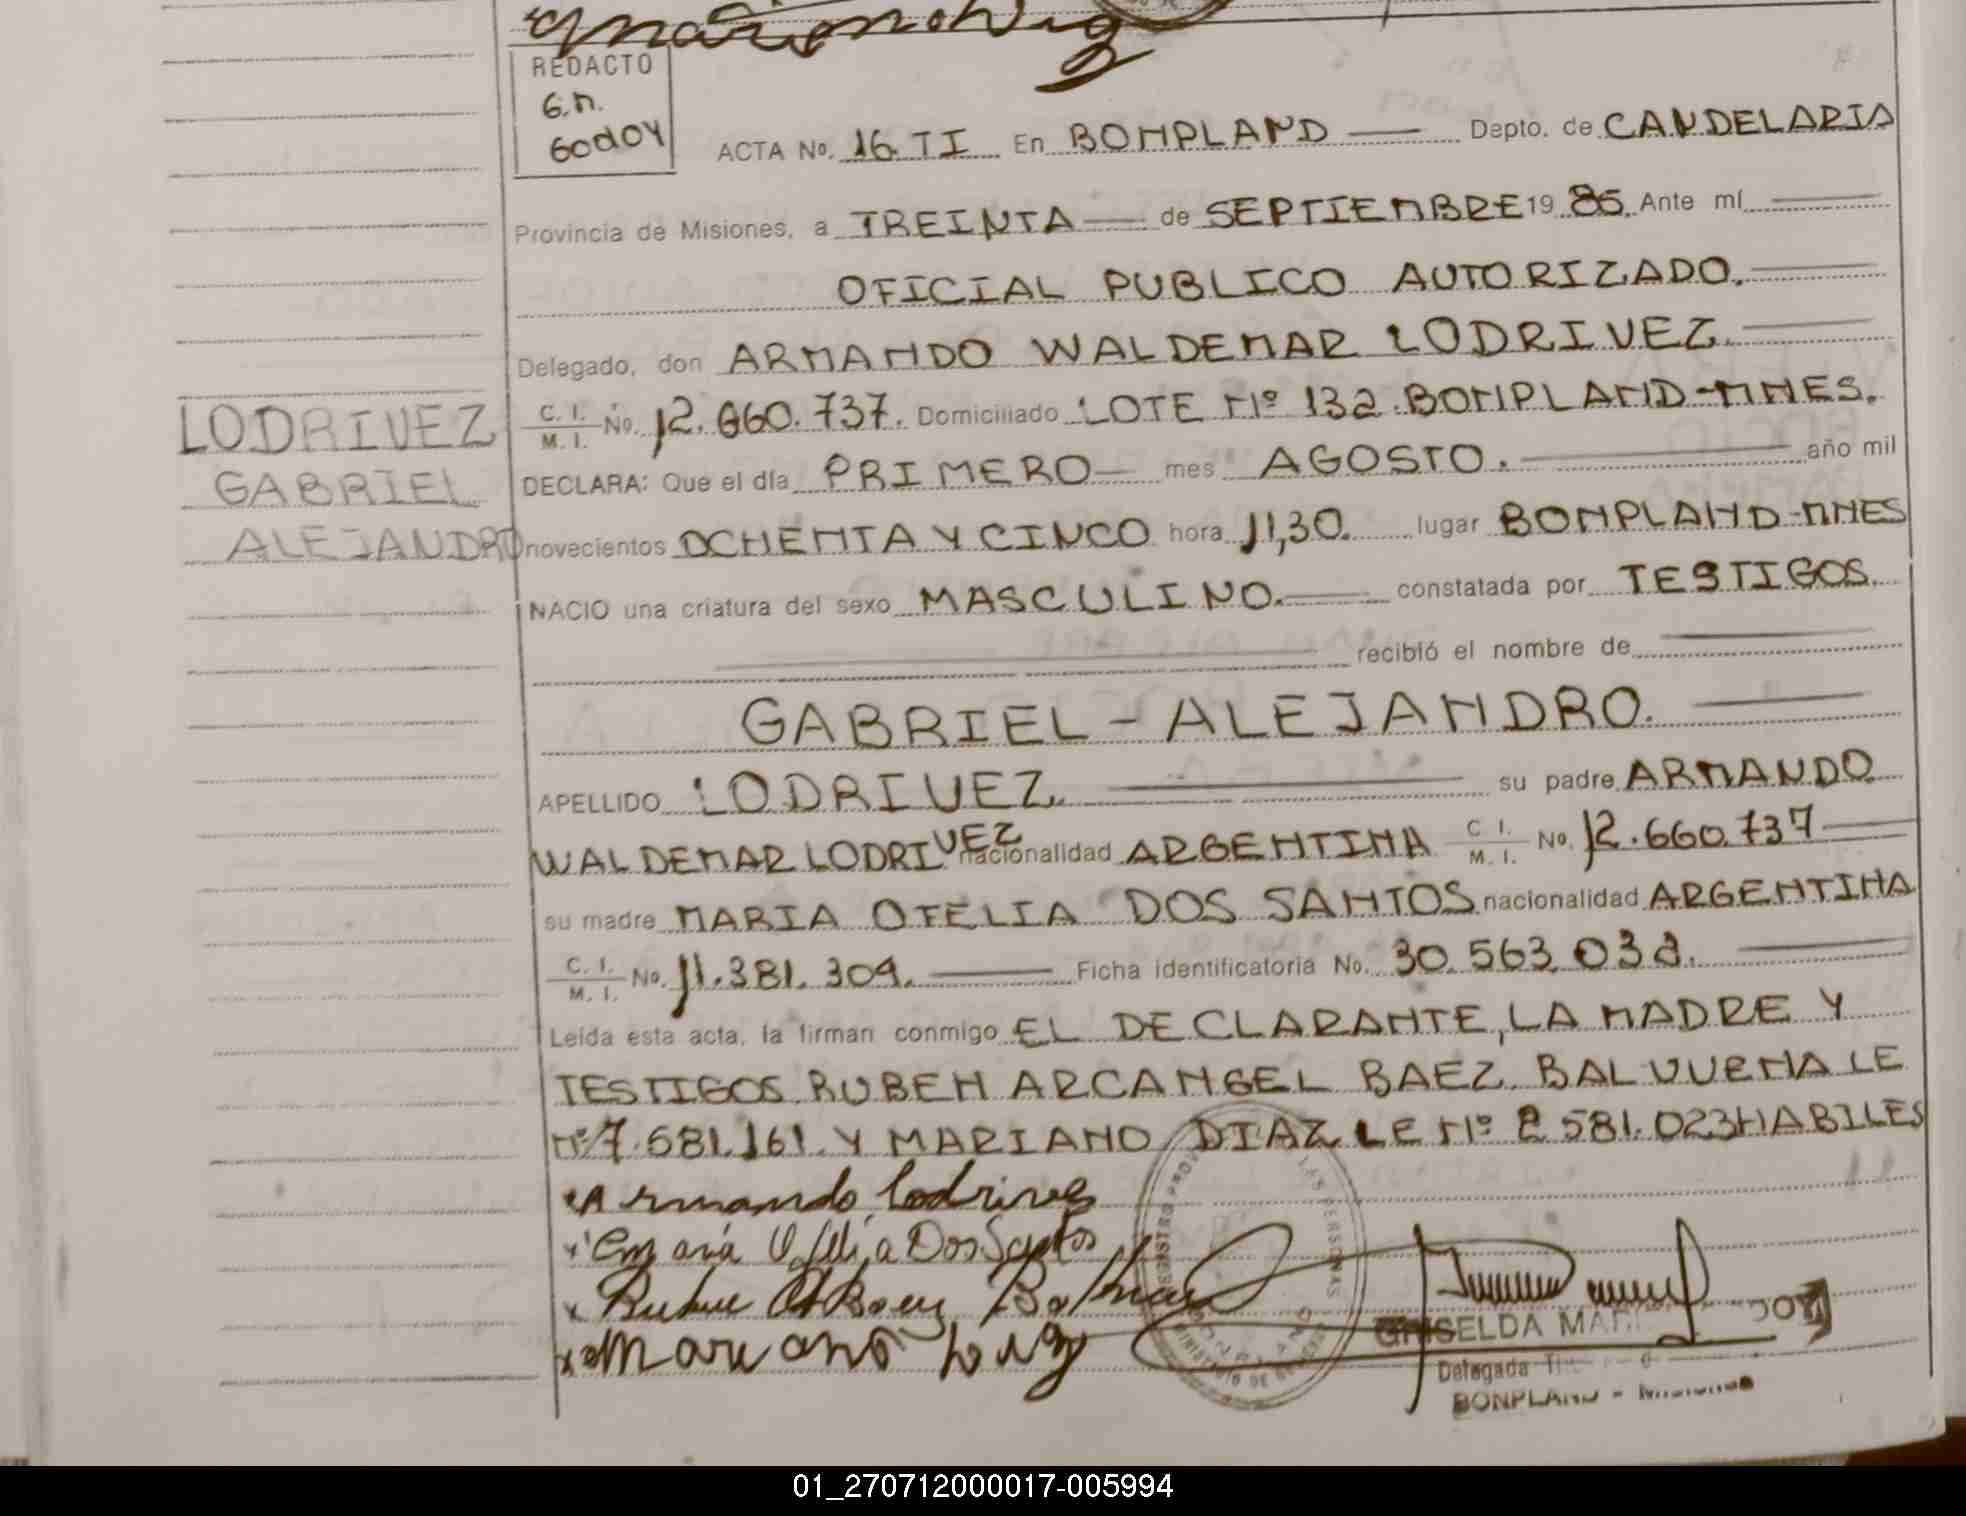 REDACTO
G.M.
GODOY
ACTA No. 16 TI En BONPLAND Depto. de CANDELARIA
Provincia de Misiones, a TREINTA de SEPTIEMBRE 19 85 Ante mí
OFICIAL PUBLICO AUTORIZADO.
Delegado, don ARMANDO WALDEMAR LODRIVEZ
C. I. / M. I. No. 12.660.737. Domiciliado LOTE Nº 132 BONPLAND-MNES.
DECLARA: Que el día PRIMERO mes AGOSTO. año mil
novecientos OCHENTA Y CINCO hora 11,30. lugar BONPLAND-MNES
NACIO una criatura del sexo MASCULINO. constatada por TESTIGOS
recibió el nombre de
GABRIEL - ALEJANDRO.
APELLIDO LODRIVEZ. su padre ARMANDO
WALDEMAR LODRIVEZ nacionalidad ARGENTINA C. I. / M. I. No. 12.660.737
su madre MARIA OFELIA DOS SANTOS nacionalidad ARGENTINA
C. I. / M. I. No. 11.381.309. Ficha identificatoria No. 30.563.032.
Leída esta acta, la firman conmigo EL DECLARANTE, LA MADRE Y
TESTIGOS RUBEN ARCANGEL BAEZ BALVUENA LE
Nº 7.581.161. Y MARIANO DIAZ LE Nº 2 581.023 HABILES
LODRIVEZ
GABRIEL
ALEJANDRO
Armando Lodrivez
Maria Ofelia Dos Santos
Mariano
GRISELDA
Delegada
BONPLAND - Misiones
01_270712000017-005994